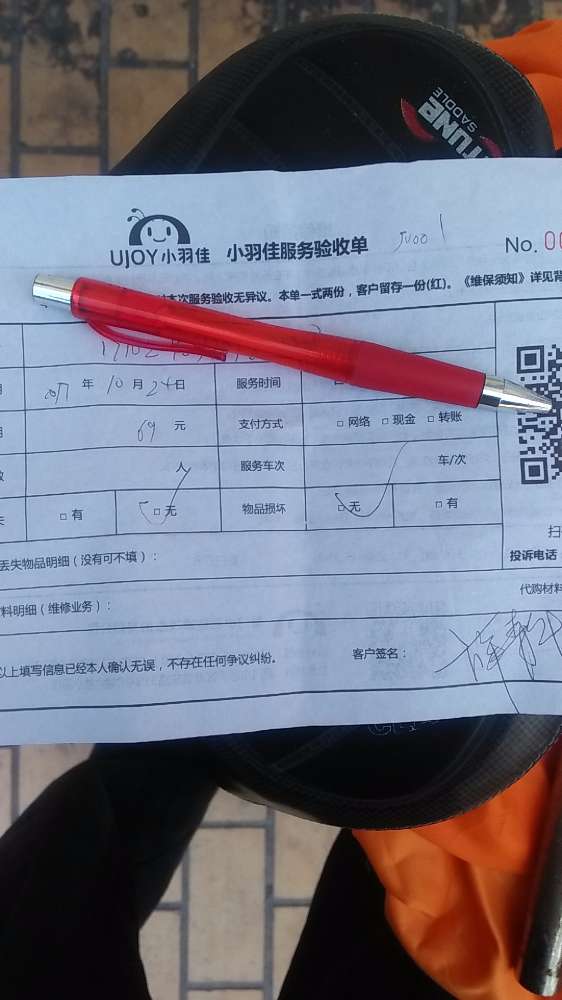 TUNE
SADDLE
UJOY小羽佳 小羽佳服务验收单 JU001
No. 00
本次服务验收无异议。本单一式两份，客户留存一份(红)。《维保须知》详见背
2017 年 10 月 24 日 服务时间
69 元 支付方式 □ 网络 □ 现金 □ 转账
人 服务车次 车/次
□ 有 □ 无 物品损坏 □ 无 □ 有
丢失物品明细（没有可不填）：
扫
投诉电话
料明细（维修业务）：
代购材料
以上填写信息已经本人确认无误，不存在任何争议纠纷。 客户签名：